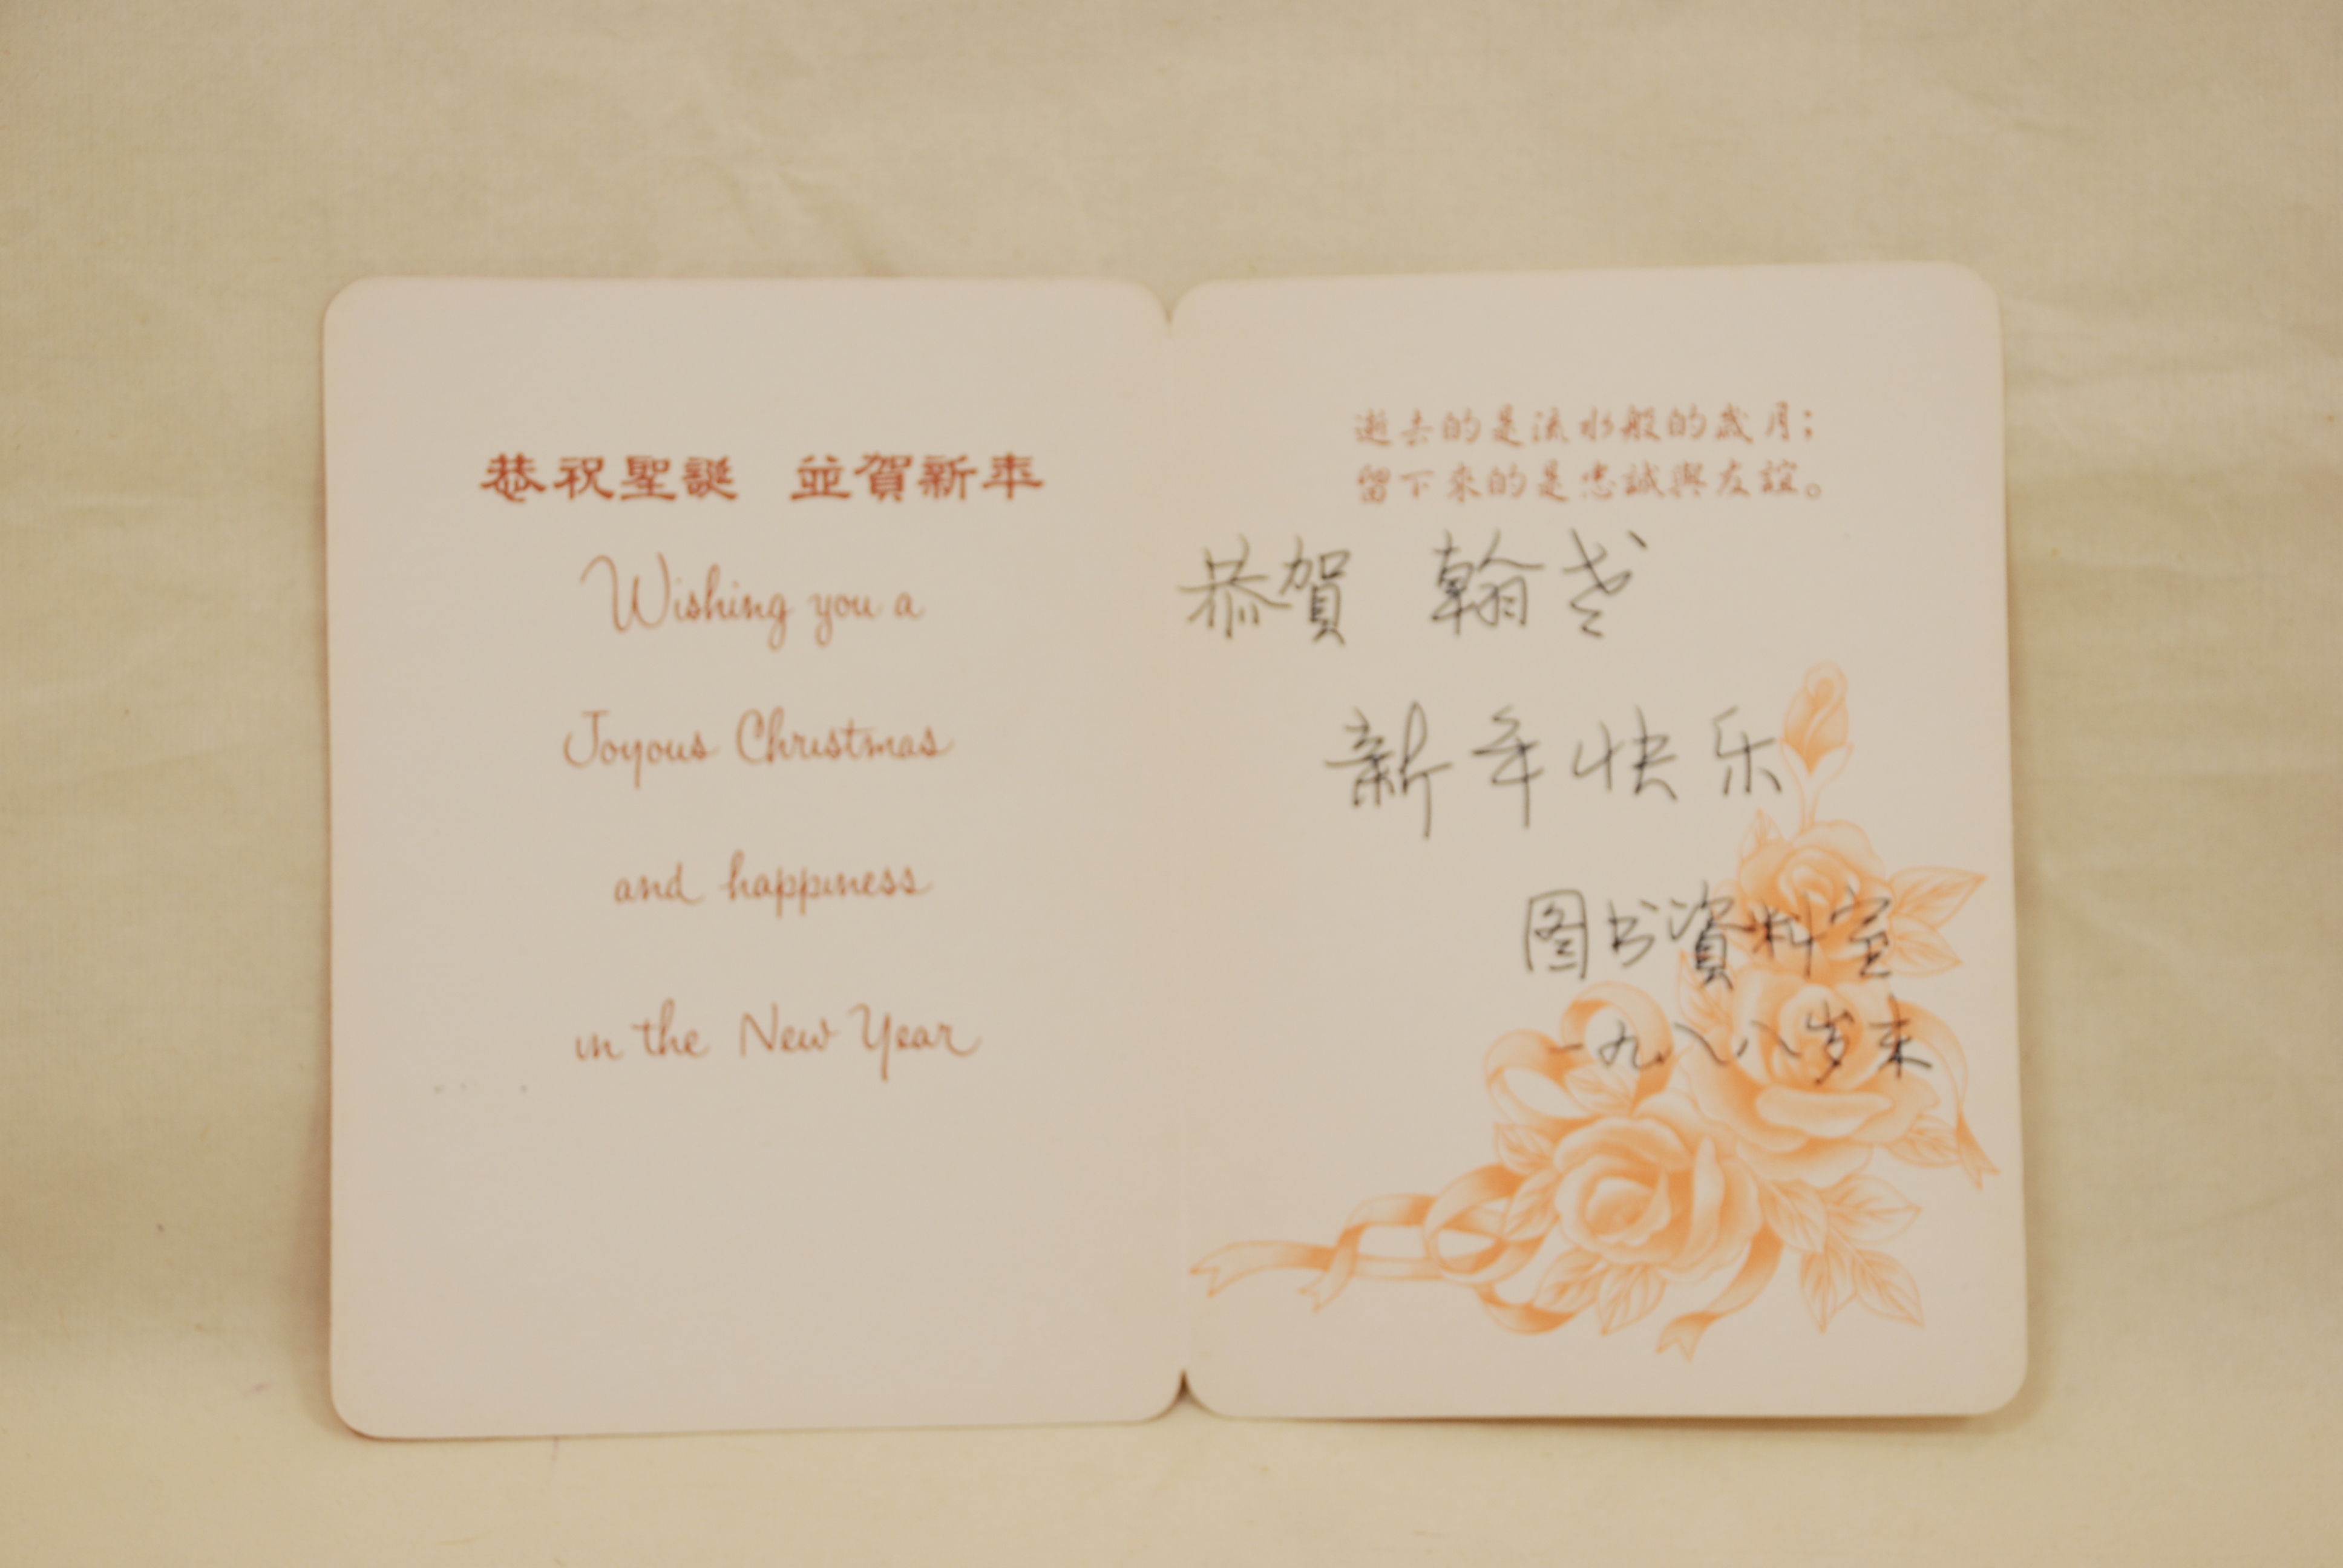 恭祝聖誕 並賀新年
Wishing you a
Joyous Christmas
and happiness
in the New Year
逝去的是流水般的歲月；
留下來的是忠誠與友誼。
恭賀 翰
新年快乐
图书資料室
一九八八岁末